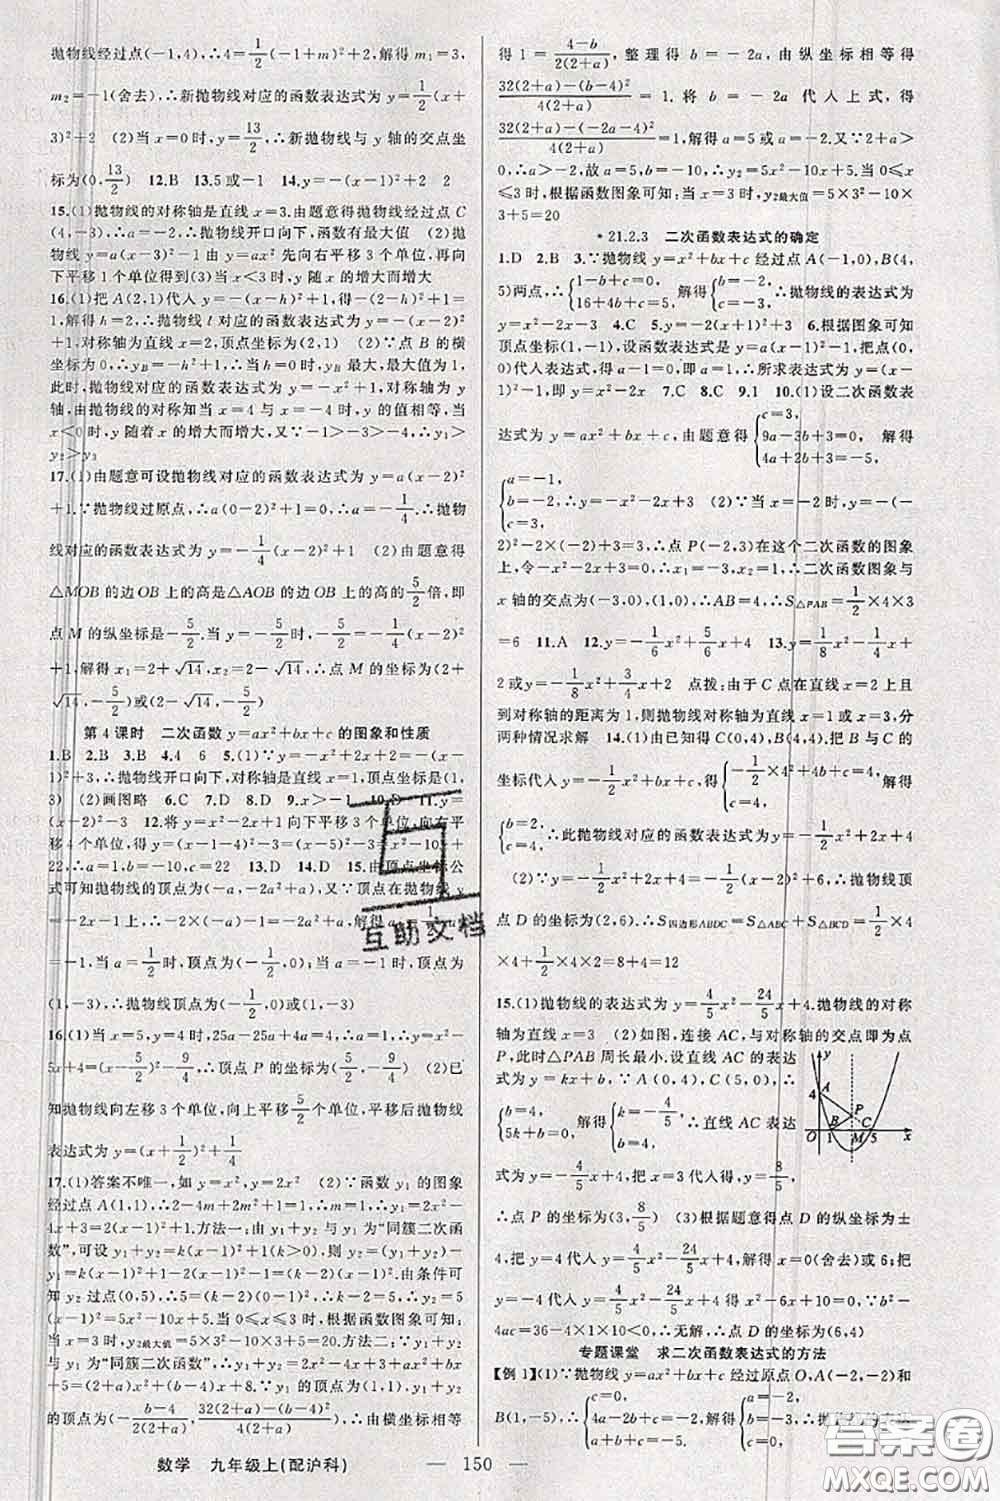 抛物线经过点(-1,4),∴4=1/2(-1+m)²+2,解得 m₁=3,
m₂=-1(舍去)∴新抛物线对应的函数表达式为 y=1/2(x+
3)²+2 (2)当 x=0 时,y=13/2,∴新抛物线与 y 轴的交点坐
标为(0,13/2) 12.B 13.5或-1 14.y=-(x-1)²+2 2
15.(1)抛物线的对称轴是直线 x=3.由题意得抛物线经过点 C
(4,-3),∴抛物线开口向下,函数有最大值 (2)抛物
线 y=-(x-3)²-2 可由 y=ax² 先向右平移 3 个单位,再向
下平移 1 个单位得到 (3)当 x<3 时,y 随 x 的增大而增大
16.(1)把 A(2,1)代入 y=-(x-h)²+1,得-(2-h)²+1=1,
解得 h=2,∴抛物线 l 对应的函数表达式为 y=-(x-2)²
+1,对称轴为直线 x=2,顶点坐标为(2,1) (2)∵点 B 的横
坐标为 0,∴y_B=-h²+1,∴当 h=0 时,y_B 最大,最大值为 1,
此时,抛物线对应的函数表达式为 y=-x²+1,对称轴为 y
轴,由抛物线的对称知当 x=4 与 x=-4 时,y 的值相等,当
x<0 时,y 随着 x 的增大而增大,又∵-1>-3>-4,∴y₁>
y₂>y₃
17.(1)由题意可设抛物线对应的函数表达式为 y=a(x-2)²
+1.∵抛物线过原点,∴a(0-2)²+1=0,∴a=-1/4.∴抛物
线对应的函数表达式为 y=-1/4(x-2)²+1 (2)由题意得
△MOB 的边 OB 上的高是△AOB 的边 OB 上的高的5/2倍,即
点 M 的纵坐标是-5/2.当 y=-5/2 时,-5/2=-1/4(x-2)²
+1,解得 x₁=2+√14,x₂=2-√14,∴点 M 的坐标为(2+
√14,-5/2)或(2-√14,-5/2)
第 4 课时 二次函数 y=ax²+bx+c 的图象和性质
1.B 2.B 3.B 4.4 6 5.(1)∵y=-x²+2x+2=-(x-
1)²+3,∴抛物线开口向下,对称轴是直线 x=1,顶点坐标是(1,
3) (2)画图略 6.C 7.D 8.D 9.x>-1 10.D 11.y=
(x-2)²-3 12.将 y=x²-2x+1 向下平移 3 个单位,向右平
移 4 个单位,得 y=(x-1-4)²-3=(x-5)²-3=x²-10x+
22,∴a=1,b=-10,c=22 13.D 14.D 15.由顶点坐标公
式可知抛物线的顶点为(-a,-2a²+a),又∵顶点在抛物线 y
=-2x-1 上,∴-2a²+a=2a-1,
-1.当 a=1/2 时,顶点为(-1/2,0);当 a=-1 时,顶点为
(1,-3),∴抛物线顶点为(-1/2,0)或(1,-3)
16.(1)当 x=5,y=4 时,25a-25a+4a=4,∴a=1,∴y=x²-
5x+4=(x-5/2)²-9/4,∴顶点 P 的坐标为(5/2,-9/4) (2)已
知抛物线向左移 3 个单位,向上平移5/2个单位,平移后抛物线
表达式为 y=(x+1/2)²+1/4
17.(1)答案不唯一,如 y=x²,y=2x² (2)∵函数 y₁ 的图象
经过点 A(1,1),∴2-4m+2m²+1=1,∴m=1,∴y₁=2x²-
4x+3=2(x-1)²+1.方法一:由 y₁+y₂ 与 y₁ 为“同簇二次函
数”,可设 y₁+y₂=k(x-1)²+1(k>0),则 y₂=k(x-1)²+
1-y₁=k(x-1)²+1-2(x-1)²-1=(k-2)(x-1)².由条件可
知 y₂ 过点(0,5),∴5=(k-2)(0-1)²,∴k-2=5,∴y₂=
5(x-1)²=5x²-10x+5.当 0≤x≤3 时,根据函数图象可知:
当 x=3 时,y₂最大值=5×3²-10×3+5=20.方法二:∵y₁+y₂
与 y₁ 为“同簇二次函数”,∴y₁+y₂=2x²-4x+3+ax²+
bx+5=(a+2)x²+(b-4)x+8(a+2>0).∵y₁+y₂
的顶点为(-(b-4)/(2(2+a)),(32(2+a)-(b-4)²)/(4(2+a))),∴由横坐标相等
得 1=(4-b)/(2(2+a)),整理得 b=-2a,由纵坐标相等得
(32(2+a)-(b-4)²)/(4(2+a))=1,将 b=-2a 代入上式,得
(32(2+a)-(-2a-4)²)/(4(2+a))=1,解得 a=5 或 a=-2,又∵2+a>
0,∴a>-2,故 a=5,b=-10,∴y₂=5x²-10x+5.当 0≤x
≤3 时,根据函数图象可知:当 x=3 时,y₂最大值=5×3²-10×
3+5=20
*21.2.3 二次函数表达式的确定
1.D 2.B 3.∵抛物线 y=x²+bx+c 经过点 A(-1,0),B(4,
5)两点,∴{1-b+c=0, 16+4b+c=5, 解得{b=-2, c=-3, ∴抛物线的表达式为
y=x²-2x-3 4.C 5.y=-2(x+1)²+2 6.根据图象可知
顶点坐标(1,-1),设函数表达式是 y=a(x-1)²-1,把点(0,
0)代入表达式,得 a-1=0,即 a=1,∴所求表达式为 y=(x-
1)²-1,即 y=x²-2x 7.C 8.C 9.1 10.(1)设二次函数表
达式为 y=ax²+bx+c,由题意得{c=3, 9a-3b+3=0, 4a+2b+3=-5, 解得
{a=-1, b=-2, c=3, ∴y=-x²-2x+3 (2)∵当 x=-2 时,y=-(-
2)²-2×(-2)+3=3,∴点 P(-2,3)在这个二次函数的图象
上,令-x²-2x+3=0,∴x₁=-3,x₂=1,∴二次函数图象与
x 轴的交点为(-3,0),(1,0),∴AB=4,∴S△PAB=1/2×4×3
=6 11.A 12.y=-1/6x²+5/6x+4 13.y=1/8x²-1/4x+
2 或 y=-1/8x²+3/4x+2 点拨:由于 C 点在直线 x=2 上且
到对称轴的距离为 1,则抛物线对称轴为直线 x=1 或 x=3,分
两种情况求解 14.(1)由已知得 C(0,4),B(4,4),把 B 与 C 的
坐标代入 y=-1/2x²+bx+c,得{-1/2×4²+4b+c=4, c=4, 解得
{b=2, c=4, ∴此抛物线对应的函数表达式为 y=-1/2x²+2x+4
(2)∵y=-1/2x²+2x+4=-1/2(x-2)²+6,∴抛物线顶
点 D 的坐标为(2,6),∴S四边形ABDC=S△ABC+S△BCD=1/2×4
×4+1/2×4×2=8+4=12
15.(1)抛物线的表达式为 y=4/5x²-24/5x+4.抛物线的对称
轴为直线 x=3 (2)如图,连接 AC,与对称轴的交点即为点
P,此时△PAB 周长最小.设直线 AC 的表达
式为 y=kx+b,∵A(0,4),C(5,0),∴
{b=4, 5k+b=0, 解得{k=-4/5, b=4, ∴直线 AC 表达
式为 y=-4/5x+4,把 x=3 代入得,y=8/5,
∴点 P 的坐标为(3,8/5) (3)根据题意得点 D 的纵坐标为±
4,把 y=4 代入 y=4/5x²-24/5x+4,解得 x=0(舍去)或 6;把
y=-4 代入 y=4/5x²-24/5x+4 得 x²-6x+10=0,∴b²-
4ac=36-4×1×10<0,∴无解,∴点 D 的坐标为(6,4)
专题课堂 求二次函数表达式的方法
【例 1】(1)∵抛物线 y=ax²+bx+c 经过原点 O,A(-2,-2)和
B(1,-5),∴{c=0, 4a-2b+c=-2, a+b+c=-5,
y
A
4
P
B
C
O
1
M
5
x
互助文档
答案圈
MXQE.COM
数学 九年级上(配沪科)
— 150 —